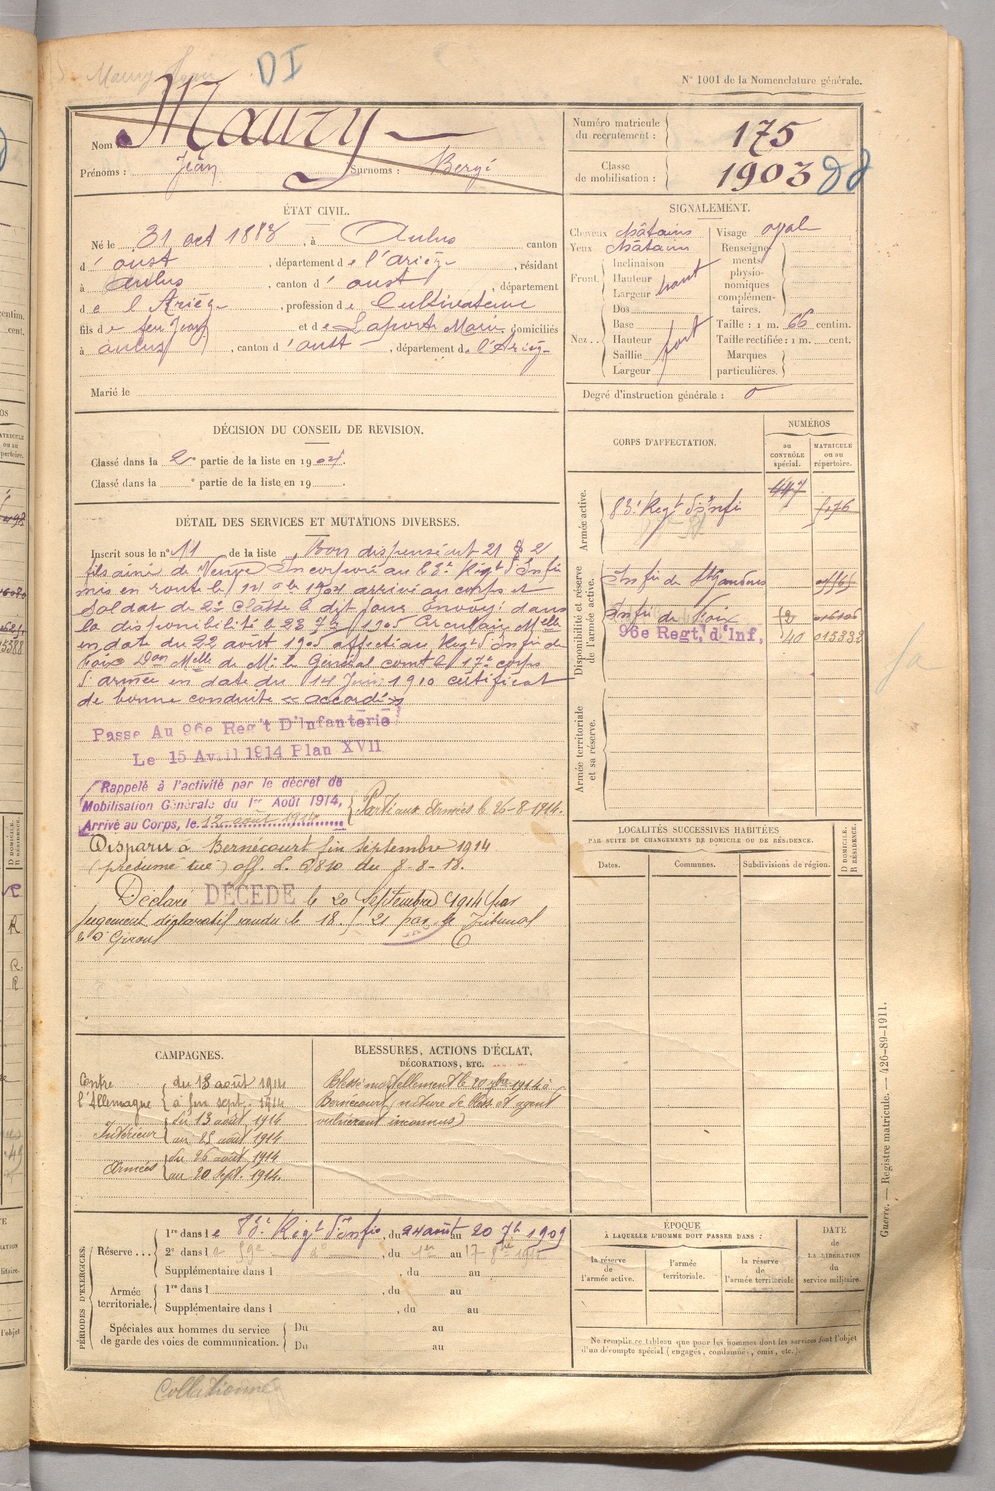 Maury Jean
DI
N° 1001 de la Nomenclature générale.
Nom : Maury
Prénoms : Jean Surnoms : Bergé
Numéro matricule du recrutement : 175
Classe de mobilisation : 1903
ÉTAT CIVIL.
Né le 31 oct 1883, à Aulus canton
d'oust, département de l'ariège, résidant
à aulus, canton d'oust, département
de l'Ariège, profession de Cultivateur
fils de feu Jean et de Laporte Marie domiciliés
à aulus, canton d'oust, département de l'Ariège
Marié le
SIGNALEMENT.
Cheveux châtains Visage ovale
Yeux châtains Renseignements physionomiques complémentaires.
Front. Inclinaison Hauteur Largeur haut
Nez. Dos Base Hauteur Saillie Largeur fort
Taille : 1 m. 66 centim.
Taille rectifiée : 1 m. cent.
Marques particulières.
Degré d'instruction générale : 0
DÉCISION DU CONSEIL DE REVISION.
Classé dans la 2e partie de la liste en 1904.
Classé dans la e partie de la liste en 19
DÉTAIL DES SERVICES ET MUTATIONS DIVERSES.
Inscrit sous le n° 11 de la liste Bon dispensé art 21 § 2
fils ainé de Veuve Incorporé au 83e Régt d'Infie
mis en route le 14 arrivé au corps et
soldat de 2e classe le dit jour Envoyé dans
la disponibilité le 23 7bre 1905 Circulaire Melle
en date du 22 août 1905 affecté au Régt d'Infie de
Foix Don Melle de M. le Général comt le 17e corps
d'armée en date du 14 Juin 1910 certificat
de bonne conduite « accordé »
Passe Au 96e Reg't D'Infanterie
Le 15 Avril 1914 Plan XVII
Rappelé à l'activité par le décret de
Mobilisation Générale du 1er Août 1914,
Arrivé au Corps, le 12 août 1914
Parti aux Armées le 26-8-1914.
Disparu à Bernecourt fin septembre 1914
(présumé tué) aff. 2. 6810 du 8-8-18.
Déclaré DÉCÉDÉ le 20 Septembre 1914 par
jugement déclaratif rendu le 18. par le Tribunal
de St Girons
CORPS D'AFFECTATION.
NUMÉROS
au CONTRÔLE spécial.
MATRICULE ou au répertoire.
Armée active.
83e Régt d'Infie 447
Disponibilité et réserve de l'armée active.
Infie de St Gaudens
Infie de Foix
96e Regt, d'Inf, 40 015832
Armée territoriale et sa réserve.
LOCALITÉS SUCCESSIVES HABITÉES
PAR SUITE DE CHANGEMENTS DE DOMICILE OU DE RÉSIDENCE.
Dates. Communes. Subdivisions de région.
D DOMICILE. R RÉSIDENCE.
CAMPAGNES.
Contre l'Allemagne du 13 août 1914
à fin sept. 1914
Intérieur du 13 août 1914
au 25 août 1914
Armées du 26 août 1914
au 20 sept. 1914.
BLESSURES, ACTIONS D'ÉCLAT,
DÉCORATIONS, ETC.
Blessé mortellement le 20 7bre 1914 à
Bernécourt (nature de bless. et agent
vulnérant inconnus)
PÉRIODES D'EXERCICES.
Réserve... 1re dans le 83e Régt d'Infie, du 24 août au 20 7b 1909
2e dans le 59e do du 1er au 17
Supplémentaire dans l du au
Armée territoriale. 1re dans l , du au
Supplémentaire dans l , du au
Spéciales aux hommes du service de garde des voies de communication. Du au
Du au
ÉPOQUE
À LAQUELLE L'HOMME DOIT PASSER DANS :
la réserve de l'armée active.
l'armée territoriale.
la réserve de l'armée territoriale
DATE de LA LIBÉRATION du service militaire.
Ne remplir ce tableau que pour les hommes dont les services font l'objet
d'un décompte spécial (engagés, condamnés, omis, etc.).
Guerre. — Registre matricule. — 426-89-1911.
Collationné